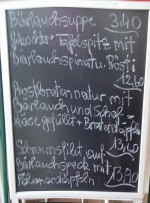 Bärlauchsuppe 3,40
Gekochter Tafelspitz mit
Bärlauchspinat u. Rösti
12,60
Hochbraten natur mit
Bärlauch und Schaf-
käse gefüllt + Braterdäpfel
13,40
Schweinsfilet auf
Bärlauchspeck mit
Petersilerdäpfeln 13,90